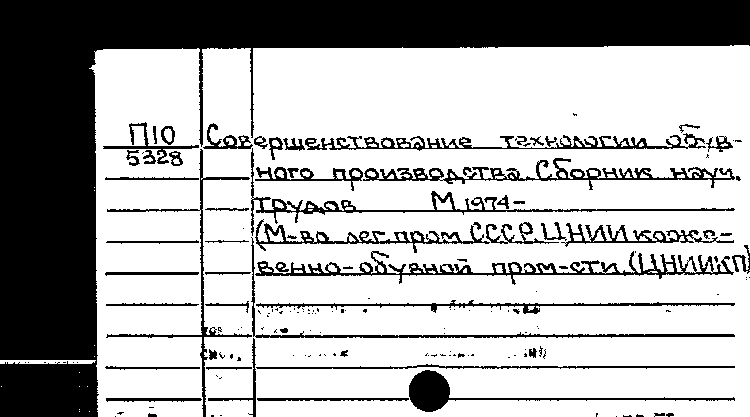 П10 Совершенствование технологии обув-
5328
ного производства. Сборник науч.
трудов М, 1974-
(М-во лег. пром. СССР. ЦНИИ коже-
венно-обувной пром-сти. (ЦНИИКП)